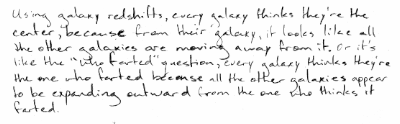 Using galaxy redshifts, every galaxy thinks they're the
center, because from their galaxy, it looks like all
the other galaxies are moving away from it. Or it's
like the "who farted" question, every galaxy thinks they're
the one who farted because all the other galaxies appear
to be expanding outward from the one who thinks it
farted.